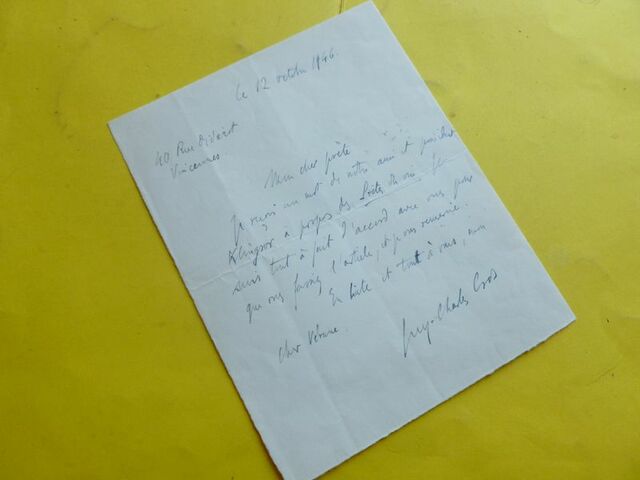 le 12 octobre 1946.
40, Rue Diderot
Vincennes
Mon cher poète
Je reçois un mot de notre ami et président
Klingsor à propos des Poètes du mois. Je
suis tout à fait d'accord avec vous pour
que vous fassiez l'article, et je vous remercie.
En hâte et tout à vous, mon
cher Vérane.
Guy-Charles Cros